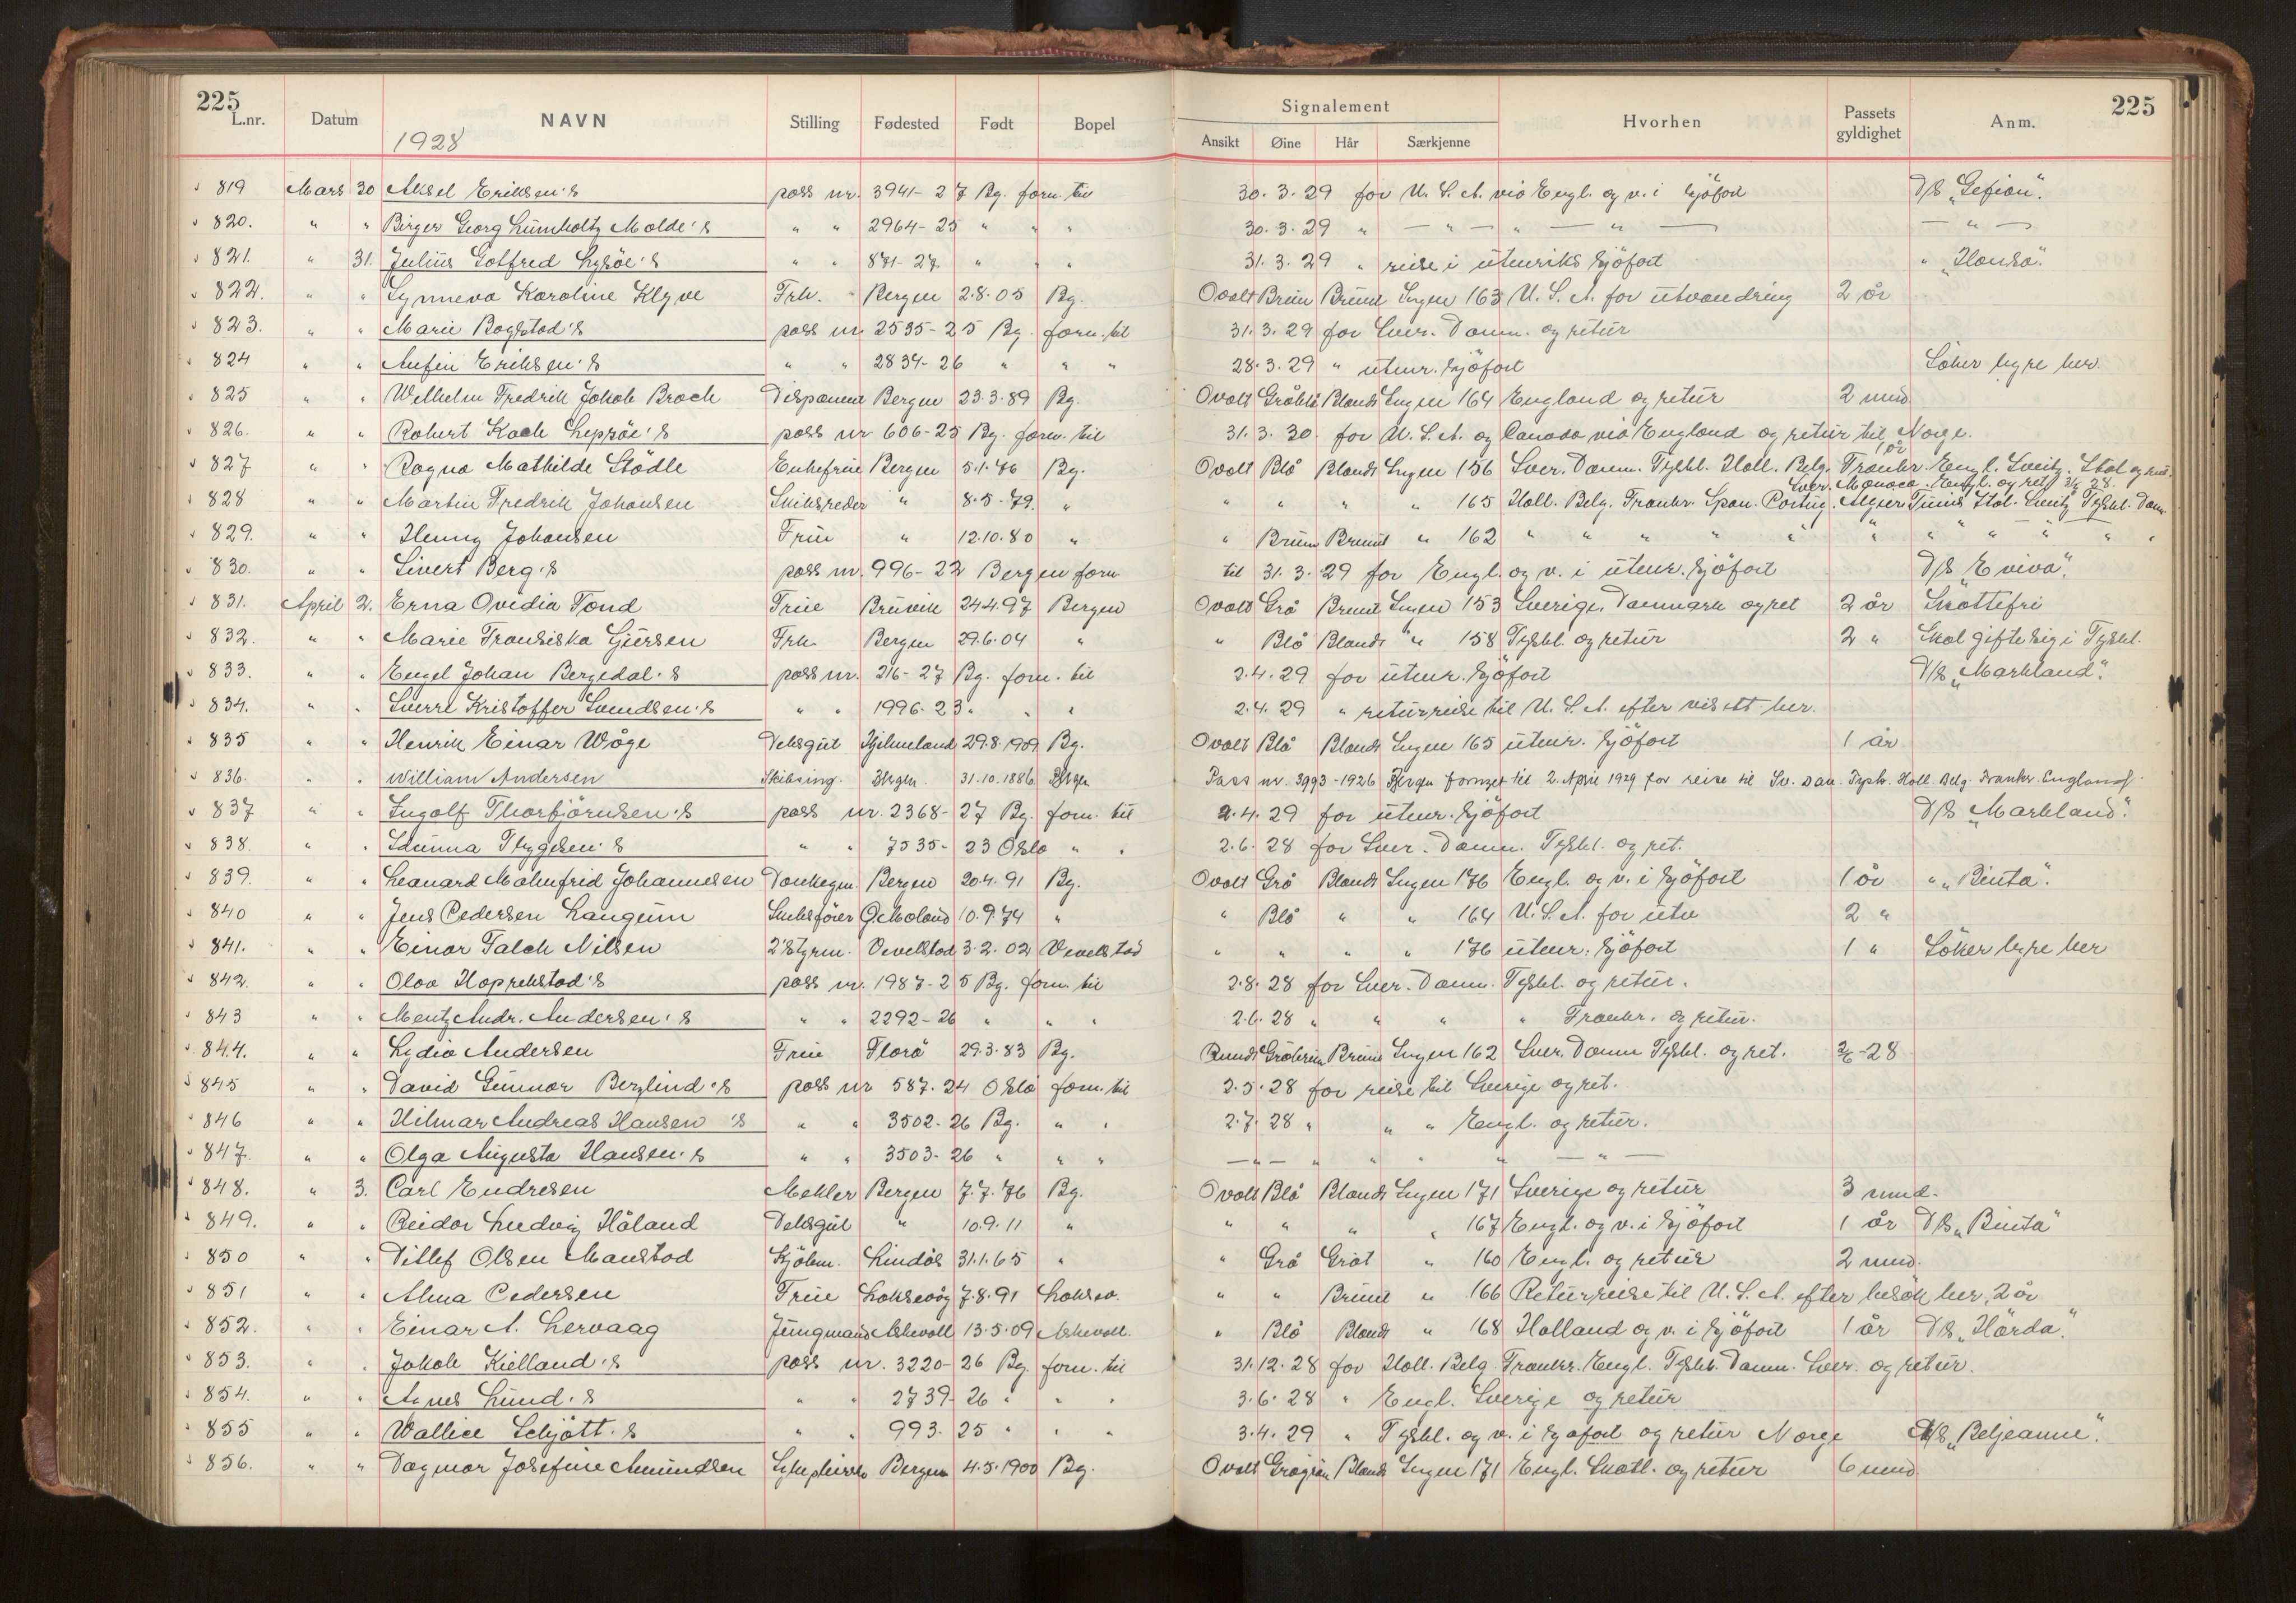 225 225
Signalement
L.nr. Datum NAVN Stilling Fødested Født Bopel Ansikt Øine Hår Særkjenne Hvorhen Passets gyldighet Anm.
1928
819 Mars 30 Aksel Eriksen's pass nr. 3941-27 Bg. forn. til 30.3.29 for U.S.A. via Engl. og v. i sjöfart D/S „Gefion".
820. " " Birger Georg Lumholtz Molde's " " 2964-25 " " " 30.3.29 " — " — " — " — — " —
821. " 31. Julius Gotfred Lysöe's " " 871-27. " " " 31.3.29 " reise i utenriks sjöfart " „Hansa".
822. " " Synneva Karoline Klyve Frk. Bergen 2.8.05 Bg. Ovalt Brun Brunt Ingen 163 U.S.A. for utvandring 2 år
823. " " Marie Bogstad's pass nr 2535-25 Bg. forn. til 31.3.29 for Sver. Danm. og retur
824 " " Anfin Eriksen's " " 2834-26 " " " 28.3.29 " utenr. sjöfart Söker hyre her.
825 " " Wilhelm Fredrik Jakob Broch Disponent Bergen 23.3.89 Bg. Ovalt Gråblå Blondt Ingen 164 England og retur 2 mnd
826. " " Robert Koch Lepsöe's pass nr 606-25 Bg. forn. til 31.3.30. for U.S.A. og Canada via England og retur til Norge.
827 " " Ragna Mathilde Stödle Enkefrue Bergen 5.1.76 Bg. Ovalt Blå Blondt Ingen 156 Sver. Danm. Tyskl. Holl. Belg. Frankr. Engl. Sveitz. Ital og ret. 1 år
828 " " Martin Fredrik Johansen Skibsreder " 8.5.79. " " " " " 165 Holl. Belg. Frankr. Span. Portug. Algier Tunis Ital. Sveitz Tyskl. Danm. Sver. Monaco. Engl. og ret
829. " " Henny Johansen Frue " 12.10.80 " " Brune Brunt " 162 " " " " " " " " " " "
830. " " Sivert Berg's pass nr. 996-22 Bergen forn til 31.3.29 for Engl. og v. i utenr. sjöfart D/S „Eviva".
831. April 2. Erna Ovidia Tond Frue Bruvik 24.4.97 Bergen Ovalt Grå Brunt Ingen 153 Sverige, Danmark og ret 2 år Skattefri
832. " " Marie Fransiska Gjersen Frk. Bergen 29.6.04 " " Blå Blondt " 158 Tyskl. og retur 2 " Skal gifte sig i Tyskl.
833. " " Engel Johan Bergedal's pass nr. 216-27 Bg. forn. til 2.4.29 for utenr. sjöfart D/S „Markland".
834. " " Sverre Kristoffer Svendsen's " " 1996-23 " " " 2.4.29 " returreise til U.S.A. efter visett her.
835 " " Henrik Einar Wåge Deksgut Hjelmeland 29.8.1909 Bg. Ovalt Blå Blondt Ingen 165 utenr. sjöfart 1 år
836. " " William Andersen Skibsing. Bergen. 31.10.1886 Bergen Pass nr. 3993-1926 Bergen fornyet til 2. April 1929 for reise til Sv. Dan. Tysk. Holl. Belg. Frankr. England
837 " " Ingolf Thorbjörnsen's pass nr. 2368-27 Bg. forn. til 2.4.29 for utenr. sjöfart D/S „Markland".
838. " " Idunna Thygesen's " " 7535-23 Oslo " " 2.6.28 for Sver. Danm. Tyskl. og ret.
839. " " Leonard Malmfrid Johannesen Donkeym. Bergen 20.4.91 Bg. Ovalt Grå Blondt Ingen 176 Engl. og v. i sjöfart 1 år " „Binta".
840 " " Jens Pedersen Langum 10.9.74 " " Blå " " 164 U.S.A. for utv 2 "
841. " " Einar Falch Nilsen 2 Styrm. Vevelstad 3.2.02 Vevelstad " " " " 176 utenr. sjöfart 1 " Söker hyre her
842. " " Olav Hoprekstad's pass nr. 1987-25 Bg. forn. til 2.8.28 for Sver. Danm. Tyskl. og retur.
843 " " Mentz Andr. Andersen's " " 2292-26 " " " 2.6.28 " " " " Frankr. og retur.
844. " " Lydia Andersen Frue Florö 29.3.83 Bg. Rundt Gråbrun Brunt Ingen 162 Sver. Danm Tyskl. og ret. 2/6-28
845 " " David Gunnar Berglind's pass nr 587-24 Oslo forn. til 2.5.28 for reise til Sverige og ret.
846 " " Hilmar Andreas Hansen's " " 3502-26 Bg. " " 2.7.28 " " " Engl. og retur.
847. " " Olga Augusta Hansen's " " 3503-26 " " " — " — " " " " — " —
848. " 3. Carl Endresen Mekler Bergen 7.7.76 Bg. Ovalt Blå Blondt Ingen 171 Sverige og retur 3 mnd.
849. " " Reidar Ludvig Håland Deksgut " 10.9.11 " " " " " 167 Engl. og v. i sjöfart 1 år D/S „Binta"
850 " " Ditlef Olsen Manstad Kjöbm. Lindås 31.1.65 " " Grå Gråt " 160 Engl. og retur 2 mnd.
851 " " Alma Pedersen Frue Laksevåg 7.8.91 Laksev. " " Brunt " 166 Returreise til U.S.A. efter besök her, 2 år
852. " " Einar A. Lervaag Jungmand Askevoll 13.5.09 Askevoll. " Blå Blondt " 168 Holland og v. i sjöfart 1 år D/S „Hårda".
853. " " Jakob Kielland's pass nr. 3220-26 Bg. forn. til 31.12.28 for Holl. Belg. Frankr. Engl. Tyskl. Danm. Sver. og retur.
854. " " Agnes Lund's " " 2739-26 " " " 3.6.28 " Engl. Sverige og retur
855 " " Wallice Schjött's " " 993-25 " " " 3.4.29 " Tyskl. og v. i sjöfart og retur Norge M/S „Beljeanne".
856. " " Dagmar Josefine Amundsen Bergen 4.5.1900 Bg. Ovalt Grågrön Blondt Ingen 171 Engl. Skotl. og retur 6 mnd